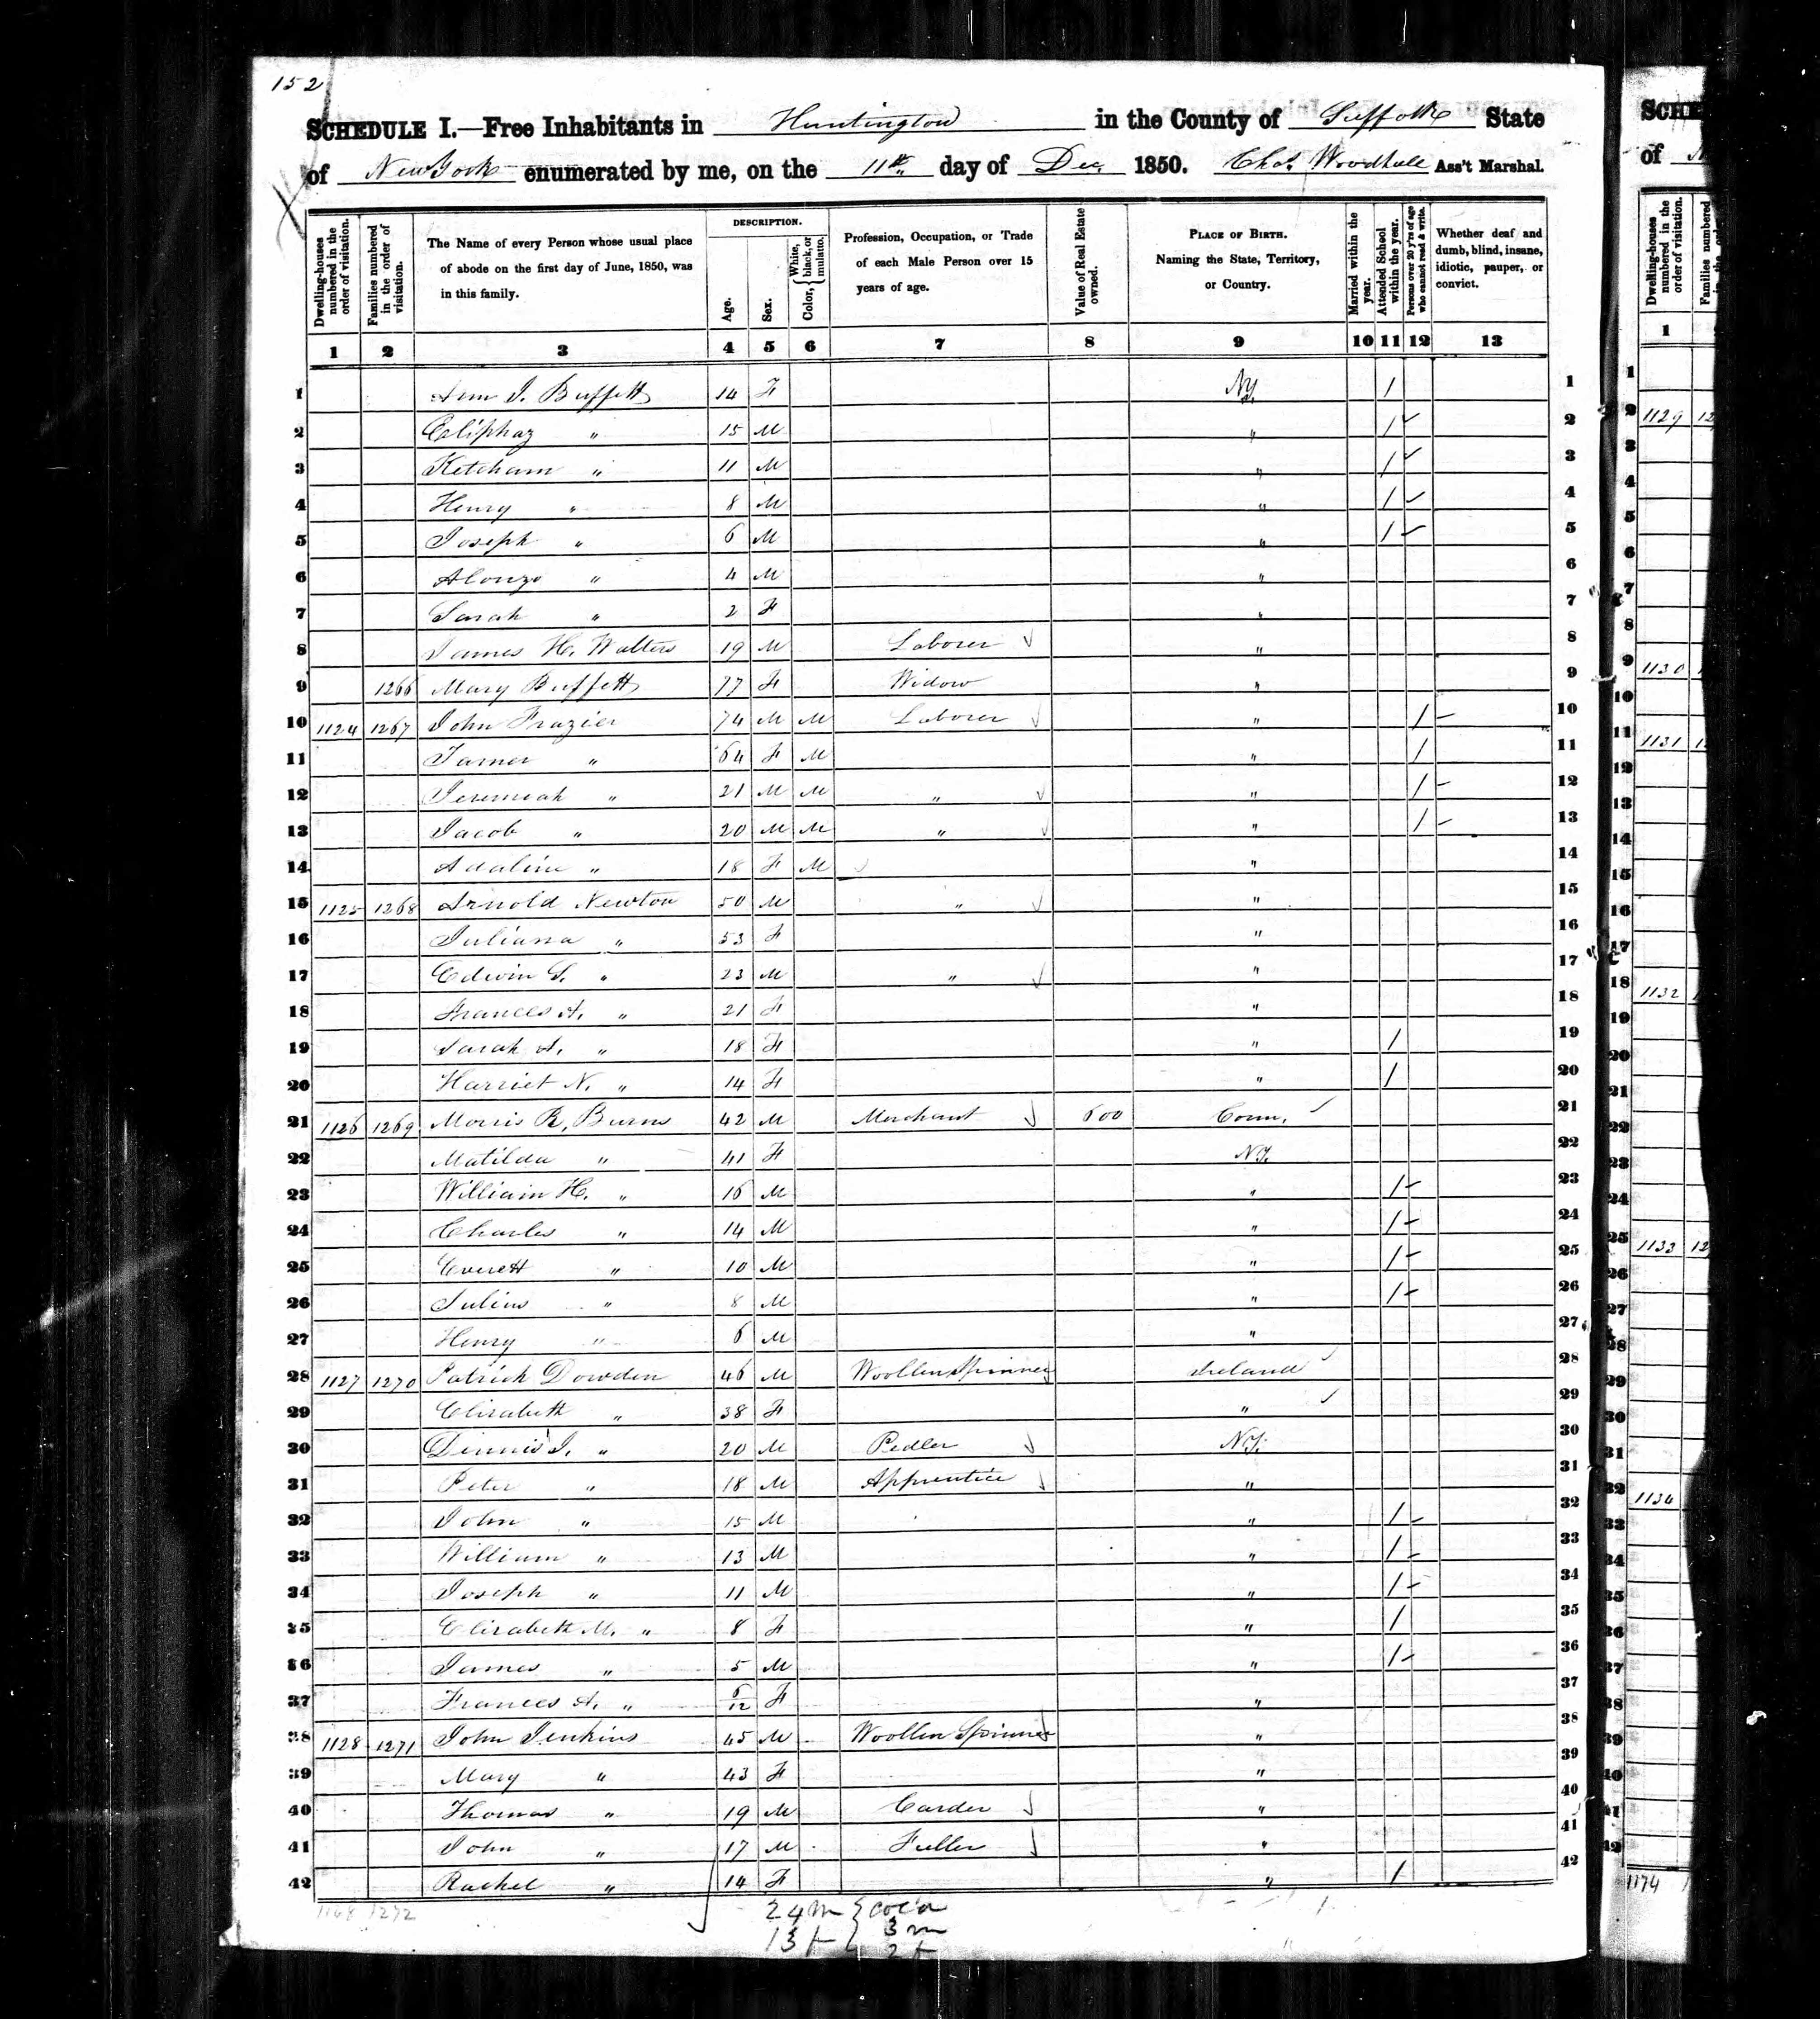 152
SCHEDULE I.—Free Inhabitants in Huntington in the County of Suffolk State
of New York enumerated by me, on the 11th day of Dec. 1850. Chas. Woodhull Ass't Marshal.
Dwelling-houses numbered in the order of visitation.
Families numbered in the order of visitation.
The Name of every Person whose usual place of abode on the first day of June, 1850, was in this family.
DESCRIPTION.
Age.
Sex.
Color, { White, black, or mulatto.
Profession, Occupation, or Trade of each Male Person over 15 years of age.
Value of Real Estate owned.
PLACE OF BIRTH. Naming the State, Territory, or Country.
Married within the year.
Attended School within the year.
Persons over 20 y'rs of age who cannot read & write.
Whether deaf and dumb, blind, insane, idiotic, pauper, or convict.
1 2 3 4 5 6 7 8 9 10 11 12 13
1 Ann J. Buffett 14 F NY. / 1
2 Eliphaz " 15 M " / ✓ 2
3 Ketcham " 11 M " / ✓ 3
4 Henry " 8 M " / ✓ 4
5 Joseph " 6 M " / ✓ 5
6 Alonzo " 4 M " 6
7 Sarah " 2 F " 7
8 James H. Walters 19 M Laborer ✓ " 8
9 1266 Mary Buffett 77 F Widow " 9
10 1124 1267 John Frazier 74 M M Laborer ✓ " / – 10
11 Tamer " 64 F M " / 11
12 Jeremiah " 21 M M " ✓ " / – 12
13 Jacob " 20 M M " ✓ " / – 13
14 Adaline " 18 F M " 14
15 1125 1268 Arnold Newton 50 M " ✓ " 15
16 Juliana " 53 F " 16
17 Edwin S. " 23 M " ✓ " 17
18 Frances A. " 21 F " 18
19 Sarah A. " 18 F " / 19
20 Harriet N. " 14 F " / 20
21 1126 1269 Morris R. Burns 42 M Merchant ✓ 600 Conn. ✓ 21
22 Matilda " 41 F NY. 22
23 William H. " 16 M " / – 23
24 Charles " 14 M " / – 24
25 Everett " 10 M " / – 25
26 Julius " 8 M " / – 26
27 Henry " 6 M " 27
28 1127 1270 Patrick Dowden 46 M Woollen Spinner Ireland ✓ 28
29 Elizabeth " 38 F " ✓ 29
30 Dinnis J. " 20 M Pedler ✓ NY. 30
31 Peter " 18 M Apprentice ✓ " 31
32 John " 15 M " / – 32
33 William " 13 M " / – 33
34 Joseph " 11 M " / – 34
35 Elizabeth M. " 8 F " / 35
36 James " 5 M " / – 36
37 Frances A. " 6/12 F " 37
38 1128 1271 John Jenkins 45 M Woollen Spinner ✓ " 38
39 Mary " 43 F " 39
40 Thomas " 19 M Carder ✓ " 40
41 John " 17 M Fuller ✓ " 41
42 Rachel " 14 F " / 42
1168 1272
24 m } col'd
13 f } 3 m
2 f
SCHE
of N
Dwelling-houses numbered in the order of visitation.
Families numbered
1
1129 12
1130 1
1131 1
1132 1
1133 12
1134
1174